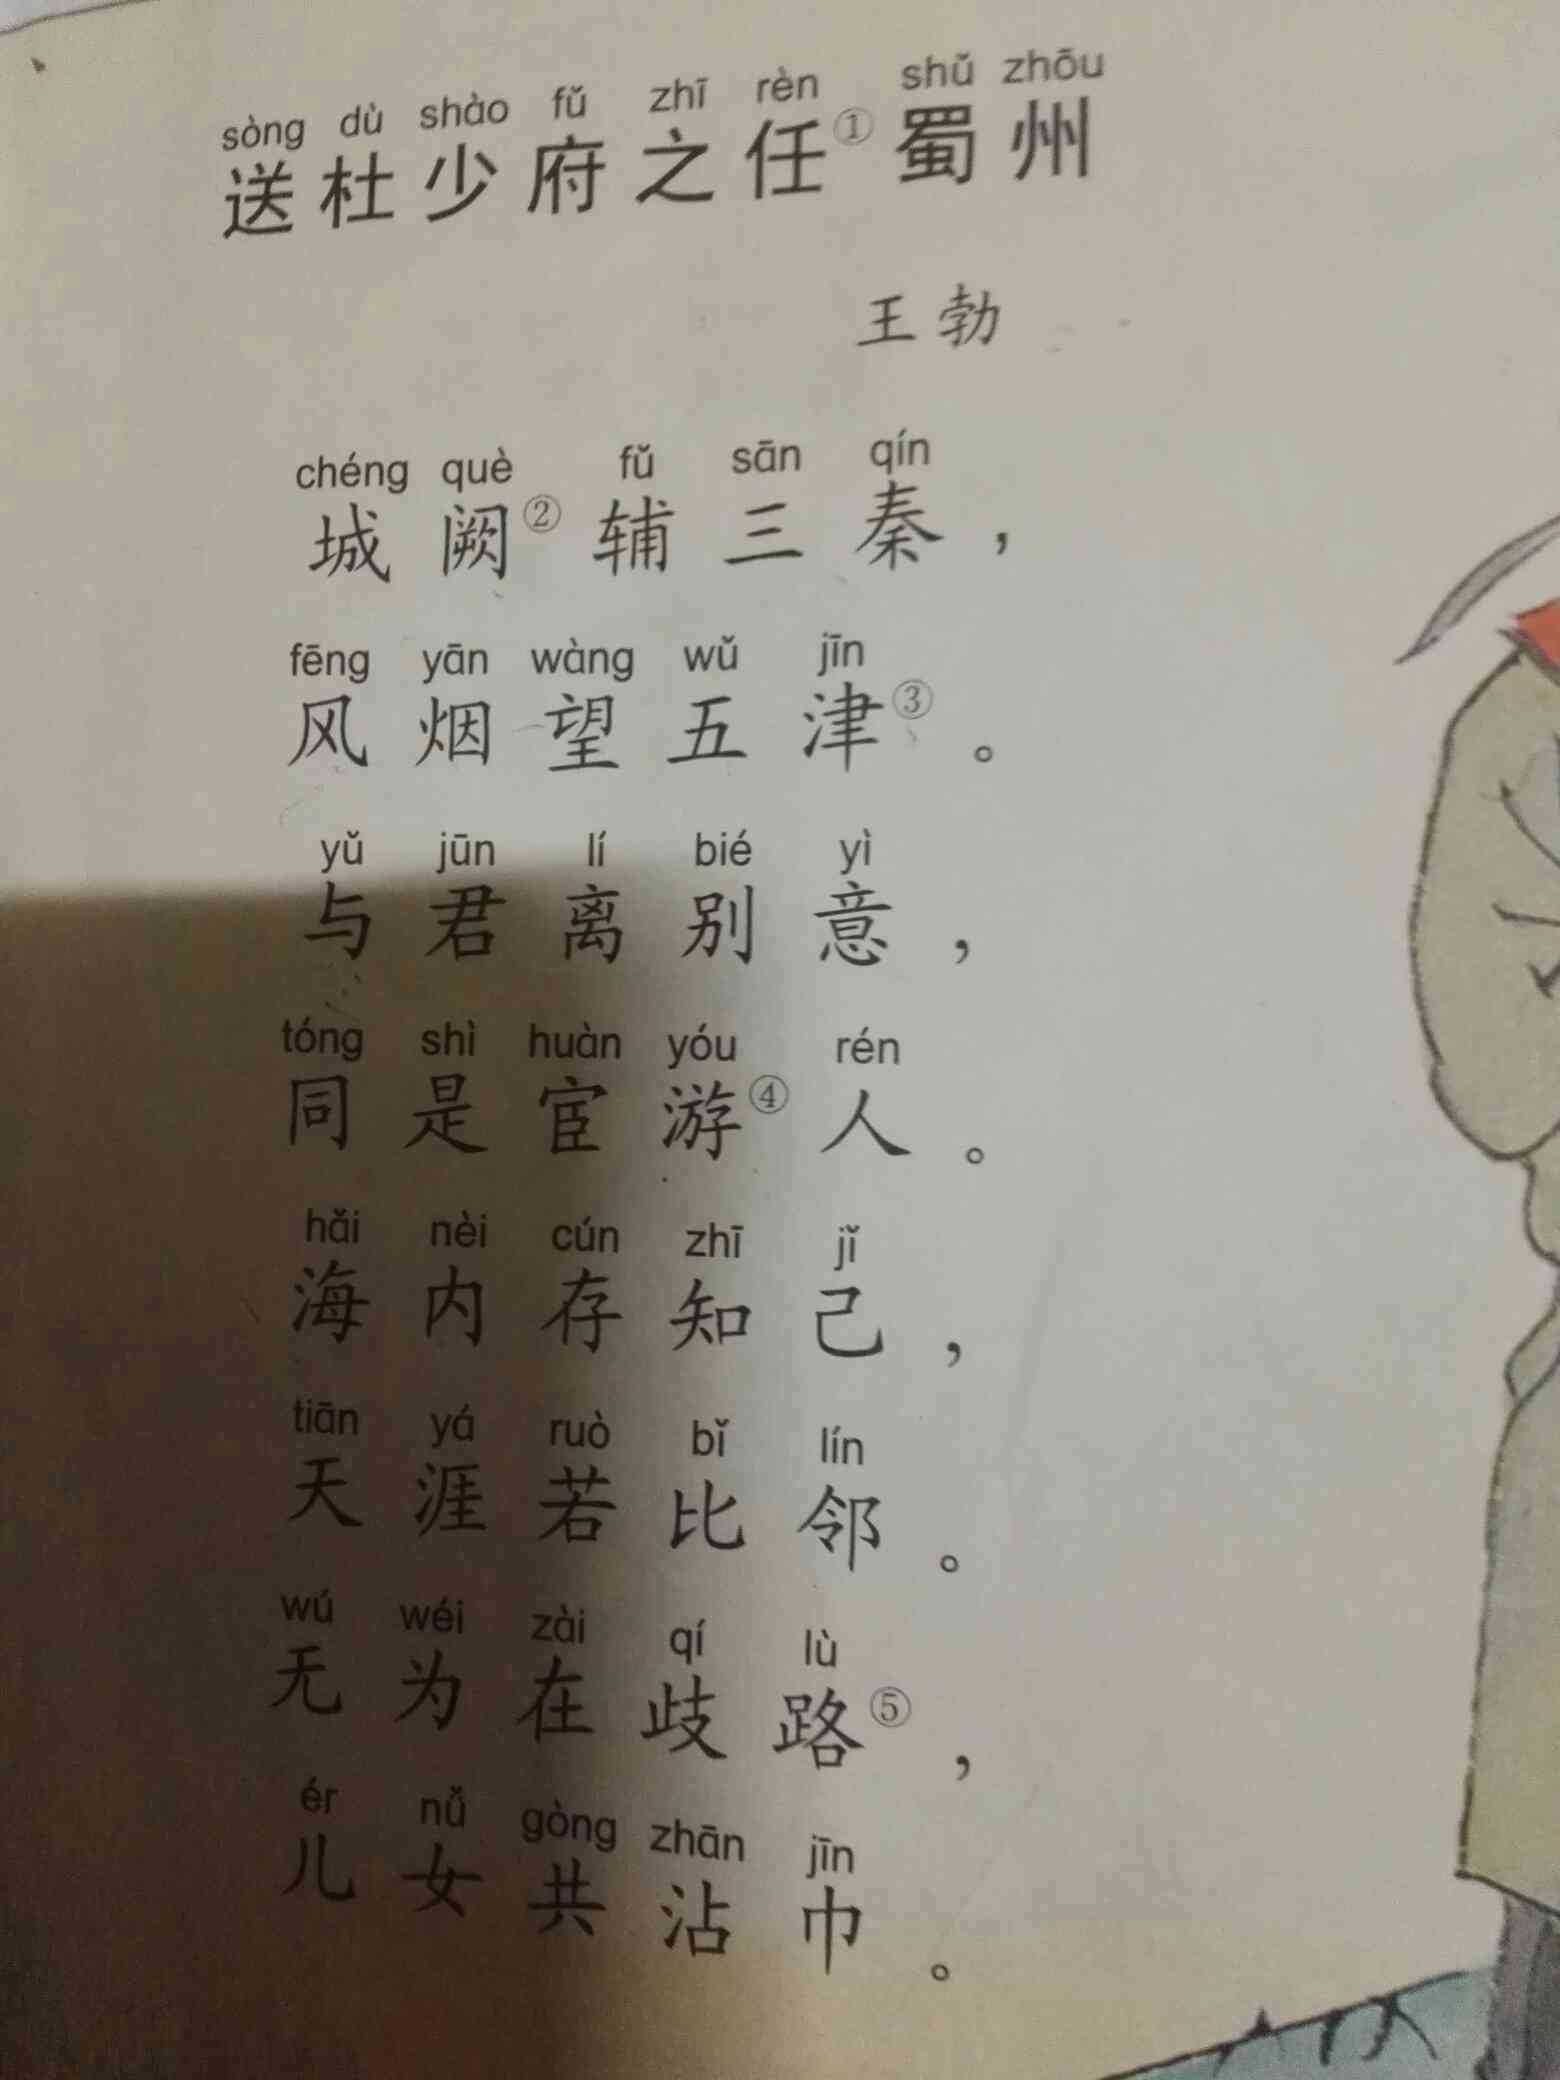 sòng dù shào fǔ zhī rèn shǔ zhōu
送杜少府之任①蜀州
王勃
chéng què fǔ sān qín
城阙②辅三秦，
fēng yān wàng wǔ jīn
风烟望五津③。
yǔ jūn lí bié yì
与君离别意，
tóng shì huàn yóu rén
同是宦游④人。
hǎi nèi cún zhī jǐ
海内存知己，
tiān yá ruò bǐ lín
天涯若比邻。
wú wéi zài qí lù
无为在歧路⑤，
ér nǚ gòng zhān jīn
儿女共沾巾。